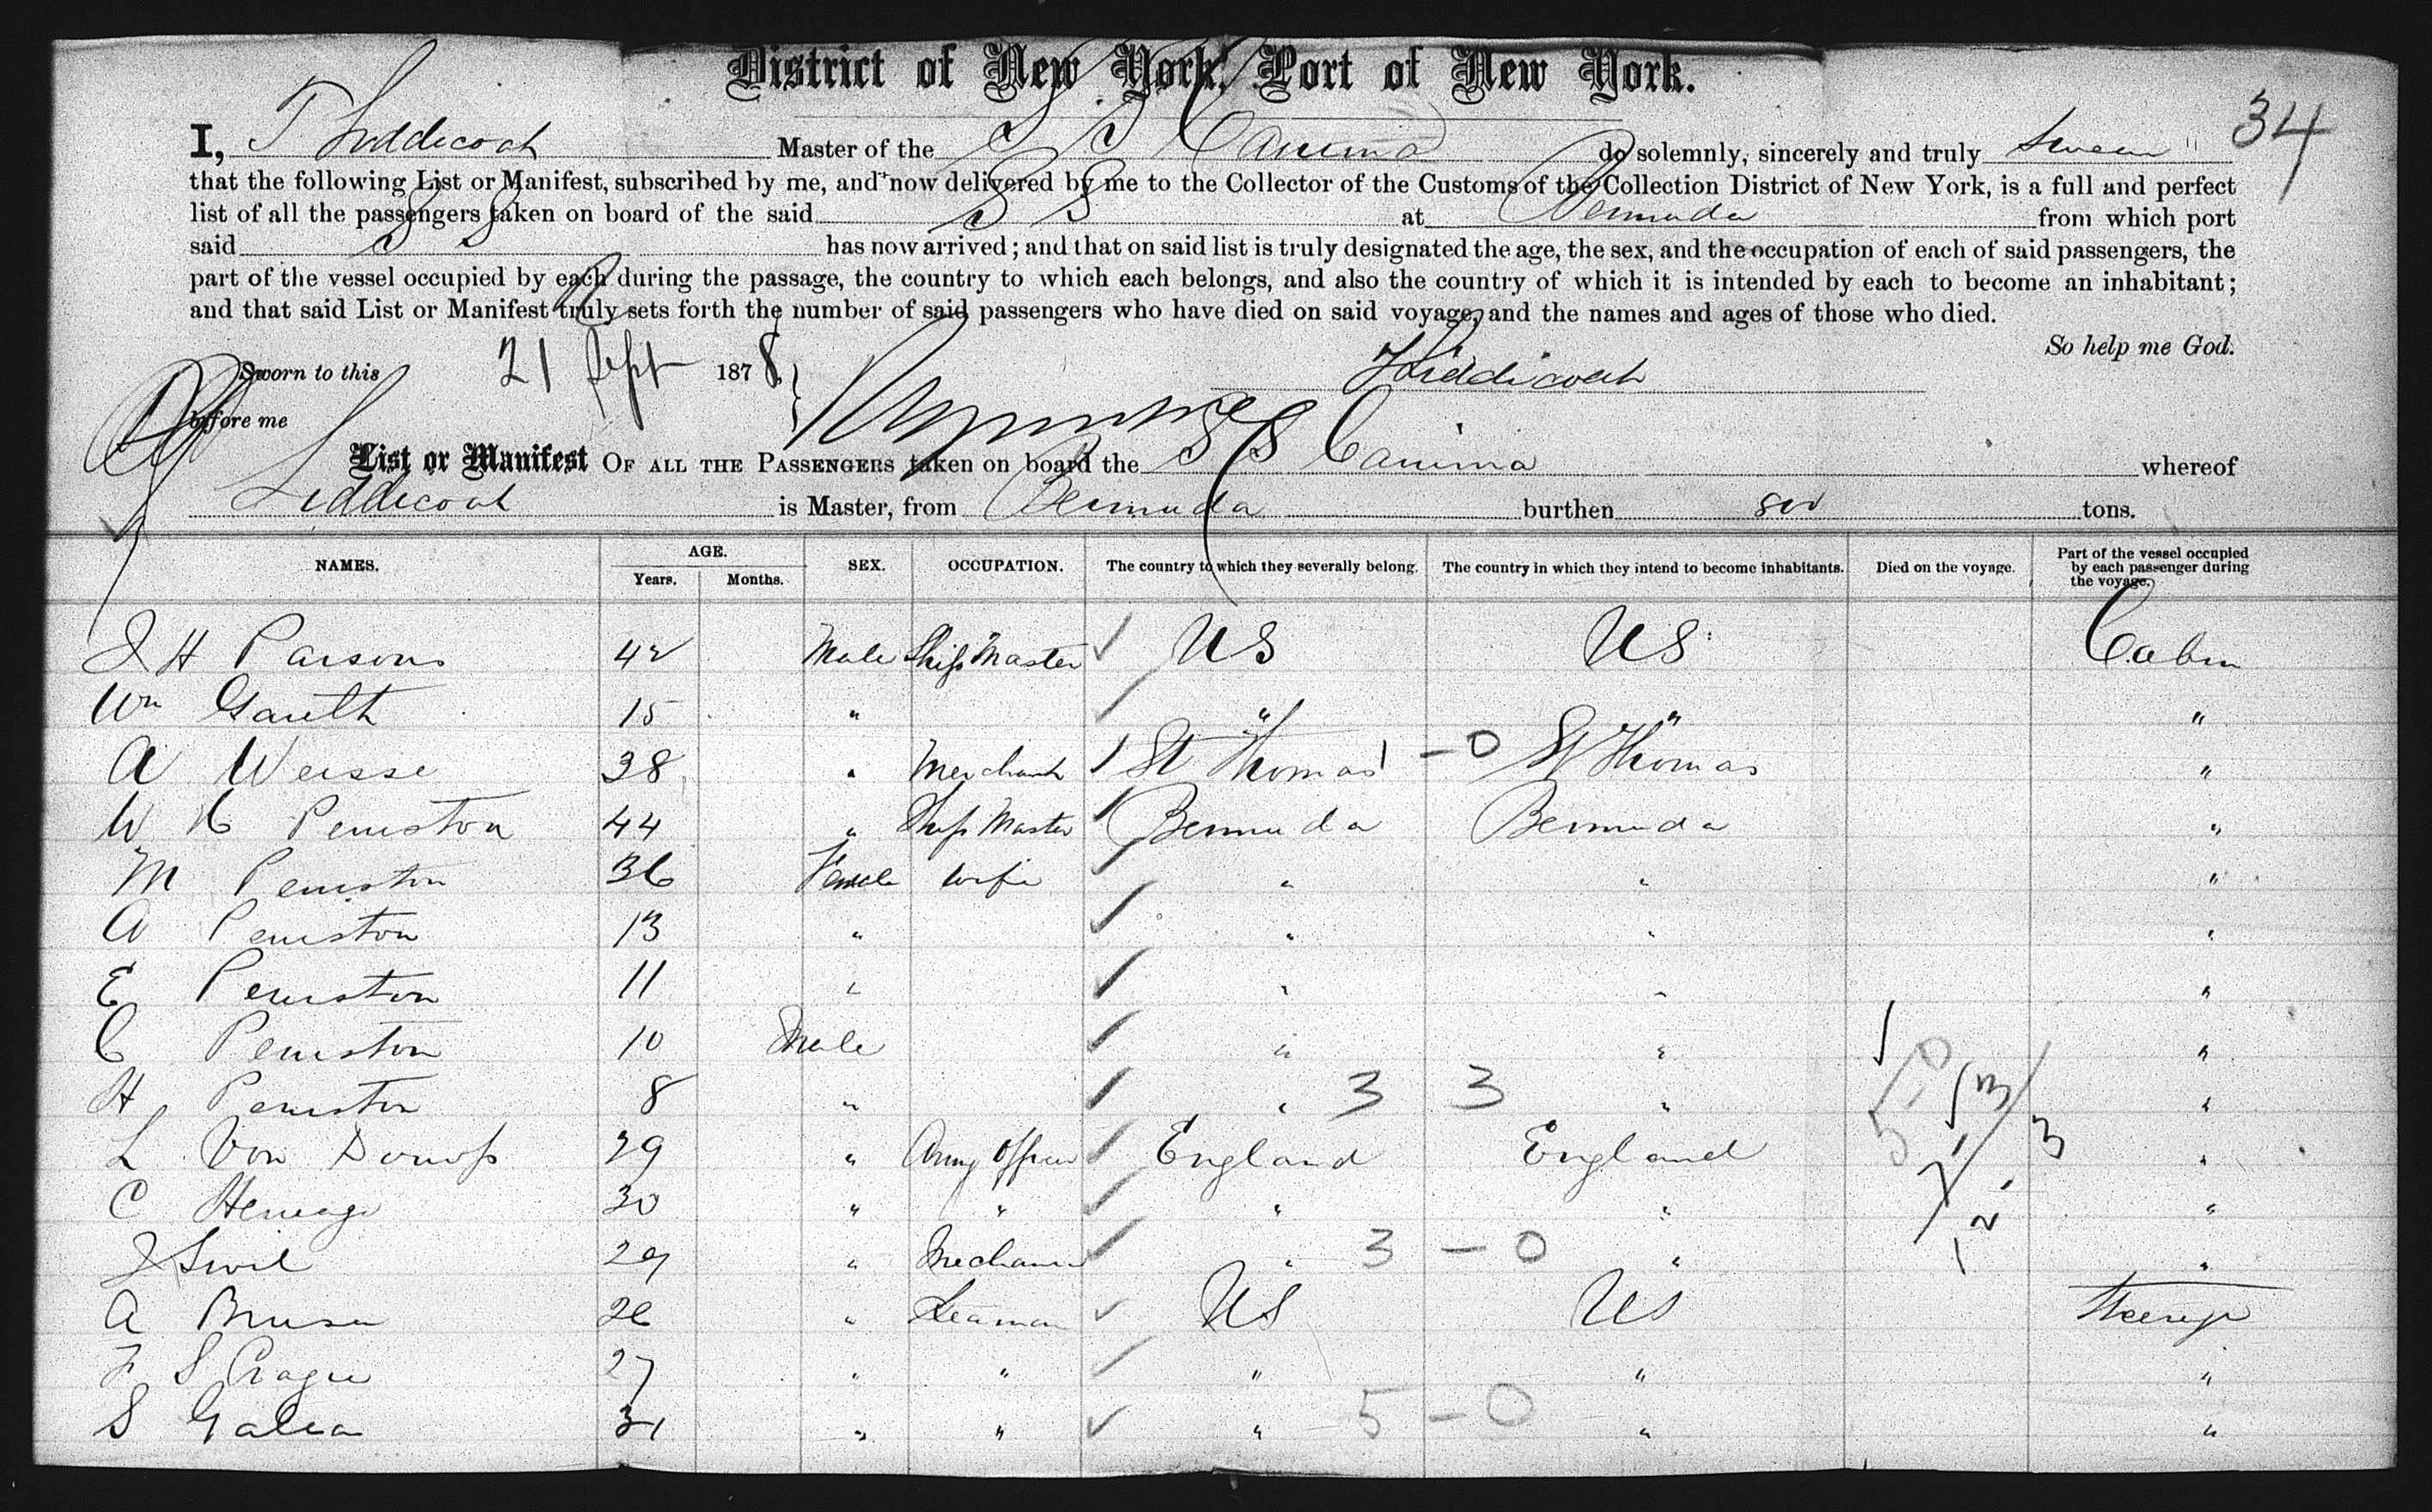 District of New York, Port of New York.
34
I, T Liddicoat Master of the S S Canima do solemnly, sincerely and truly swear
that the following List or Manifest, subscribed by me, and now delivered by me to the Collector of the Customs of the Collection District of New York, is a full and perfect
list of all the passengers taken on board of the said S S at Bermuda from which port
said S S has now arrived; and that on said list is truly designated the age, the sex, and the occupation of each of said passengers, the
part of the vessel occupied by each during the passage, the country to which each belongs, and also the country of which it is intended by each to become an inhabitant;
and that said List or Manifest truly sets forth the number of said passengers who have died on said voyage, and the names and ages of those who died.
So help me God.
Sworn to this 21 Sept 1878 Liddicoat
before me
List or Manifest OF ALL THE PASSENGERS taken on board the S S Canima whereof
Liddicoat is Master, from Bermuda burthen tons.
NAMES. AGE. Years. Months. SEX. OCCUPATION. The country to which they severally belong. The country in which they intend to become inhabitants. Died on the voyage. Part of the vessel occupied by each passenger during the voyage.
J H Parsons 42 Male Ship Master US US Cabin
Wm 15 " " " "
A Weisse 38 " Merchant St Thomas 1 - 0 St Thomas "
W Peniston 44 " Ship Master Bermuda Bermuda "
M Peniston 36 Female Wife " " "
A Peniston 13 " " " "
E Peniston 11 " " " "
C Peniston 10 Male " " "
H Peniston 8 " " 3 3 " "
L Von Donop 29 " Army Officer England England "
C Heneage 30 " " " " "
J 29 " Mechanic " 3 - 0 " "
A 26 " Seaman US US Steerage
F S 27 " " " " "
S Galea 31 " " " 5 - 0 " "